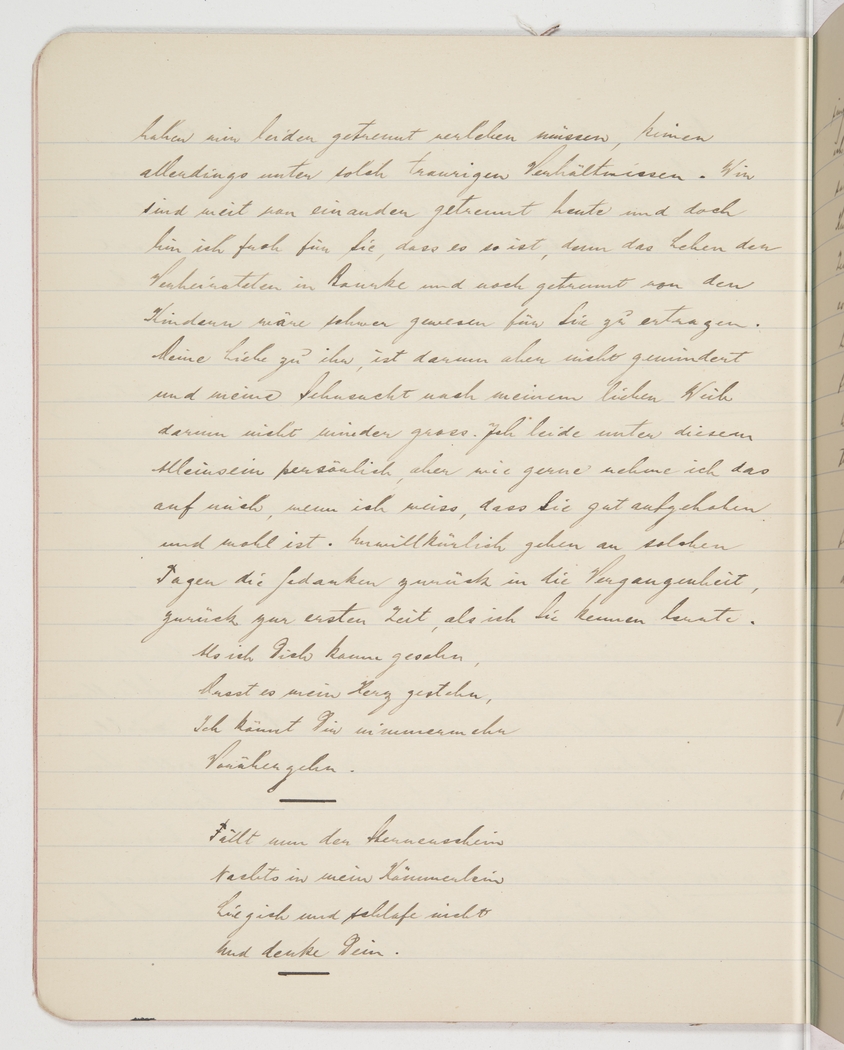 haben wir leider getrennt verleben müssen, keinen
allerdings unter solch traurigen Verhältnissen. Wir
sind weit von einander getrennt heute und doch
bin ich froh für Sie, dass es so ist, denn das Leben der
Verheirateten in Bourke und noch getrennt von den
Kindern wäre schwer gewesen für Sie zu ertragen.
Meine Liebe zu ihr, ist darum aber nicht gemindert
und meine Sehnsucht nach meinem lieben Weib
darum nicht minder gross. Ich leide unter diesem
Alleinsein persönlich, aber wie gerne nehme ich das
auf mich, wenn ich weiss, dass Sie gut aufgehoben
und wohl ist. Unwillkürlich gehen an solchen
Tagen die Gedanken zurück in die Vergangenheit,
zurück zur ersten Zeit, als ich Sie kennen lernte.
Als ich Dich kaum gesehn,
Musst es mein Herz gestehn,
Ich könnt Dir nimmermehr
Vorübergehn.
Fällt nun der Sternenschein
Nachts in mein Kämmerlein
Lieg ich und schlafe nicht
Und denke Dein.